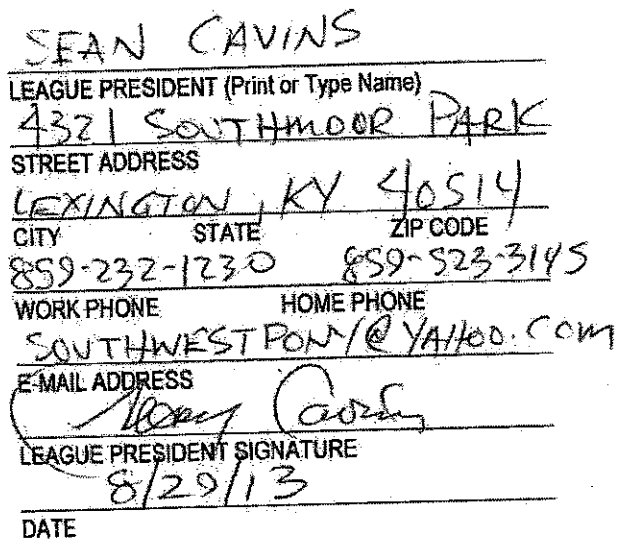 SEAN CAVINS
LEAGUE PRESIDENT (Print or Type Name)
4321 SOUTHMOOR PARK
STREET ADDRESS
LEXINGTON, KY 40514
CITY STATE ZIP CODE
859-232-1230 859-523-3145
WORK PHONE HOME PHONE
SOUTHWESTPONY@YAHOO.COM
E-MAIL ADDRESS
LEAGUE PRESIDENT SIGNATURE
8/29/13
DATE